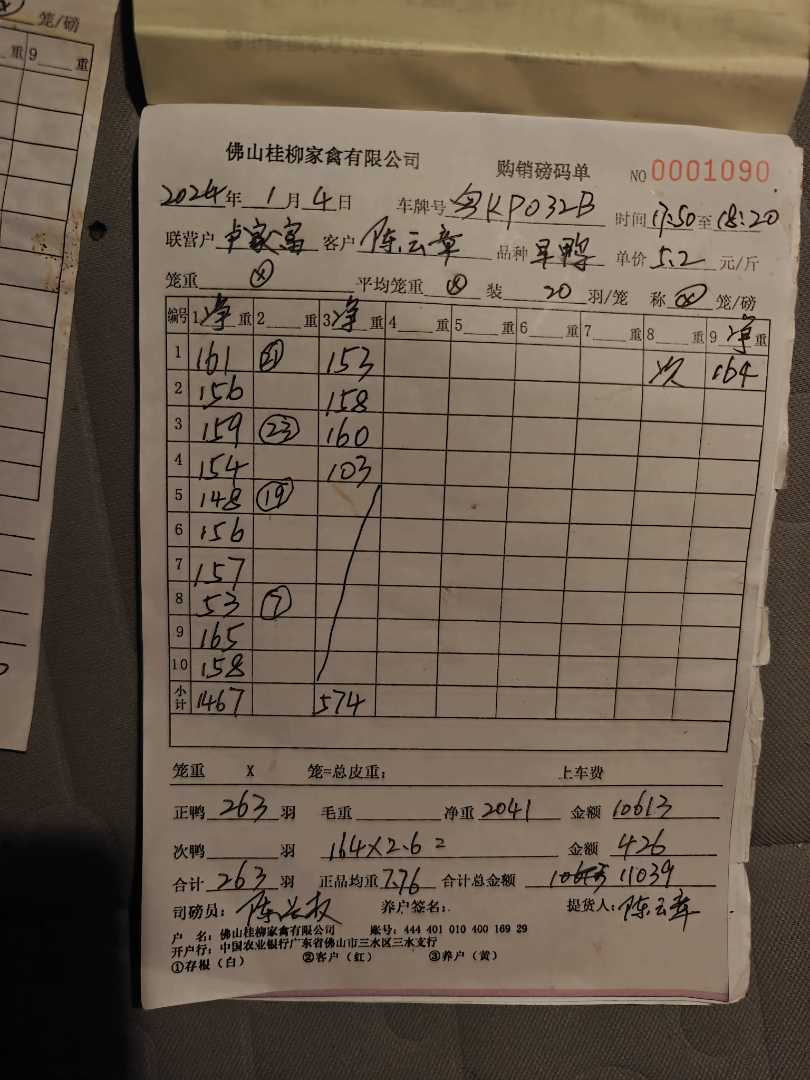 笼/磅
重 9 重
佛山桂柳家禽有限公司 购销磅码单 NO 0001090
2024年 1月4日 车牌号 粤KP032B 时间 17:50至18:20
联营户 卢家富 客户 陈云章 品种 旱鸭 单价 5.2 元/斤
笼重 ⊗ 平均笼重 ⊗ 装 20 羽/笼 称 ⊗ 笼/磅
编号 1 净 重 2 重 3 净 重 4 重 5 重 6 重 7 重 8 重 9 净 重
1 161 ㉑ 153 次 164
2 156 158
3 159 ㉓ 160
4 154 103
5 148 ⑲
6 156
7 157
8 53 ⑦
9 165
10 158
小计 1467 574
笼重 X 笼=总皮重: 上车费
正鸭 263 羽 毛重 净重 2041 金额 10613
次鸭 羽 164×2.6= 金额 426
合计 263 羽 正品均重 7.76 合计总金额 11039
司磅员: 养户签名: 提货人: 陈云章
户 名: 佛山桂柳家禽有限公司 账号: 444 401 010 400 169 29
开户行: 中国农业银行广东省佛山市三水区三水支行
①存根(白) ②客户(红) ③养户(黄)